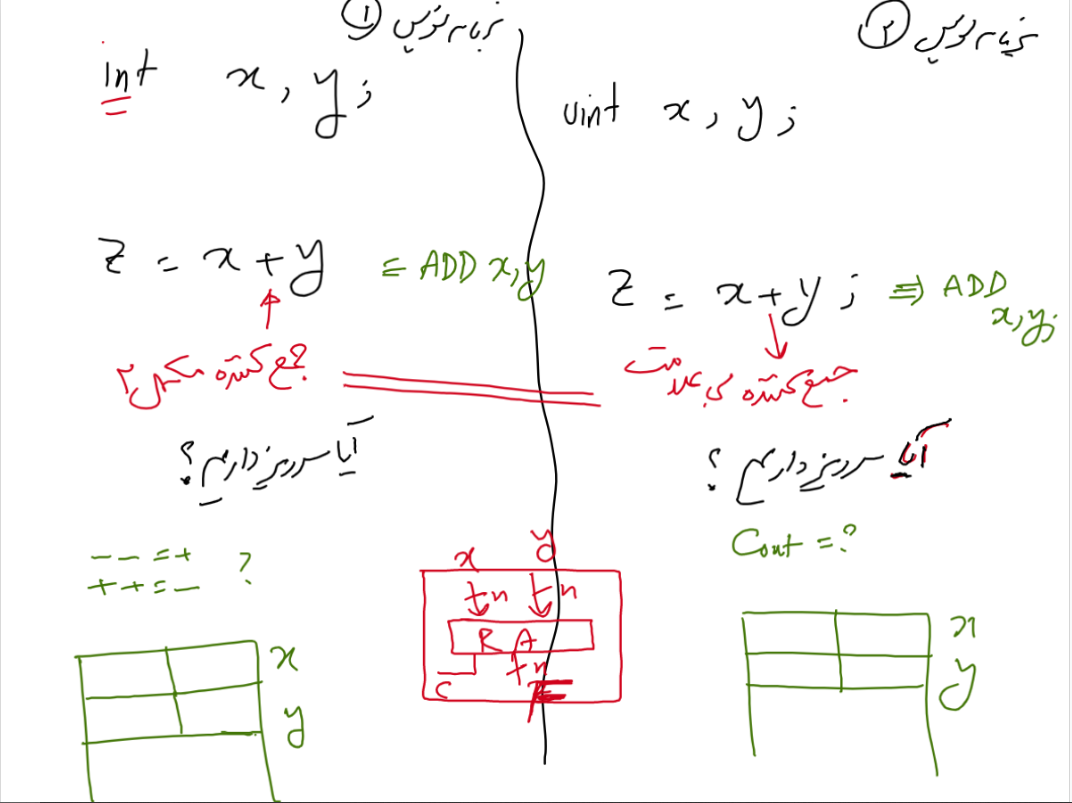 برنامه نویس ①
int x, y;
z = x + y ≡ ADD x, y
جمع کننده مکمل ۲
آیا سرریز داریم؟
- - = +
+ + = - ?
x
y
برنامه نویس ②
uint x, y;
z = x + y; ⇒ ADD
x, y;
جمع کننده بی علامت
آیا سرریز داریم؟
Cout = ?
x
y
x y
n n
R A
C n